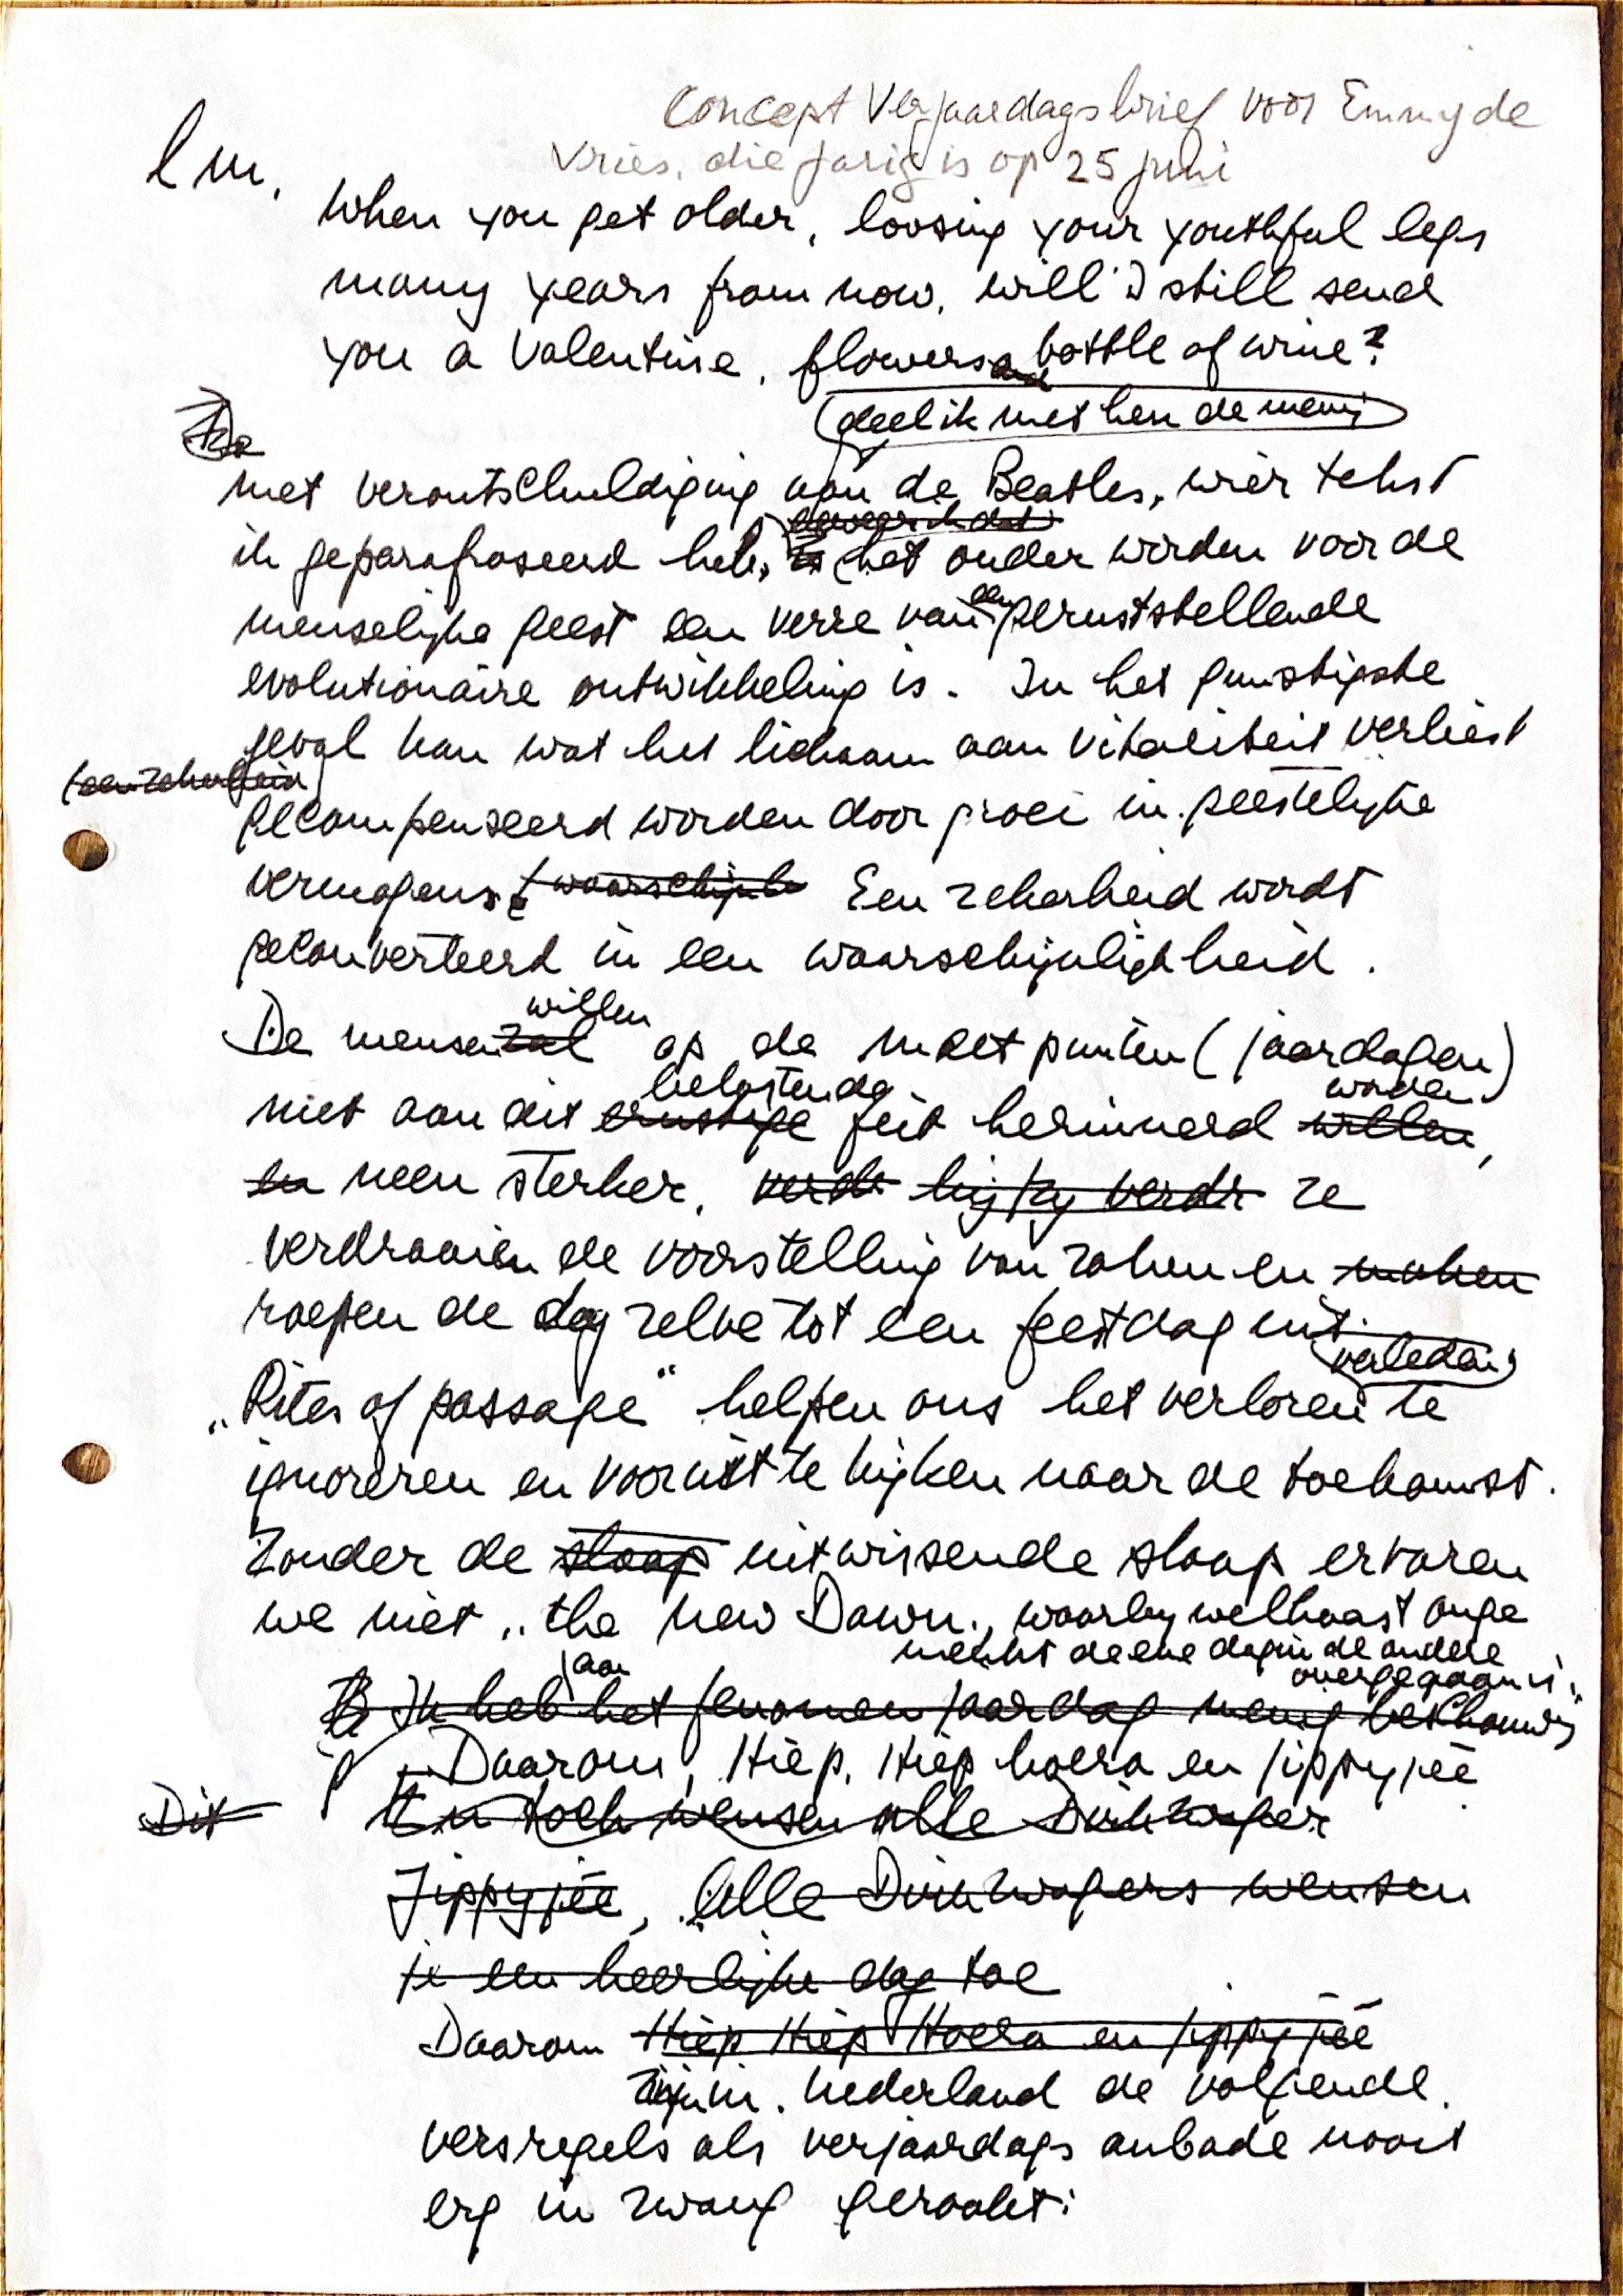 Concept Verjaardagsbrief voor Emmy de
Vries, die jarig is op 25 juni
Em,
When you get older, loosing your youthful legs
many years from now, will I still send
you a Valentine, flowers and bottle of wine?
deel ik met hen de mening
met verontschuldiging aan de Beatles, wier tekst
ik geparafraseerd heb, is het ouder worden voor de
menselijke geest een verre van een geruststellende
evolutionaire ontwikkeling is. In het gunstigste
geval kan wat het lichaam aan vitaliteit verliest
(een zekerheid)
gecompenseerd worden door groei in geestelijke
vermogens (waarschijnl Een zekerheid wordt
geconverteerd in een waarschijnlijkheid.
willen
De mensen zal op de meetpunten (jaardagen)
belastende worden
niet aan dit ernstige feit herinnerd willen,
en neen sterker, verdr hij/zij verdr ze
verdraaien de voorstelling van zaken en maken
roepen de dag zelve tot een feestdag uit.
verleden
„Rites of passage" helpen ons het verloren te
ignoreren en vooruit te kijken naar de toekomst.
Zonder de slaap uitwissende slaap ervaren
we niet „the new Dawn., waarby welhaast onge
merkt de ene dag in de andere
overgegaan is."
jaar
Ik heb het fenomeen jaardag menig beschouwing
Daarom, Hiep, Hiep hoera en jippyjeë
Dit
En toch wensen alle Dirkzwager
Jippyjeë, Alle Dirkzwagers wensen
je een heerlijke dag toe
Daarom Hiep Hiep Hoera en jippyjeë
zijn in Nederland de volgende
versregels als verjaardags aubade nooit
erg in zwang geraakt: